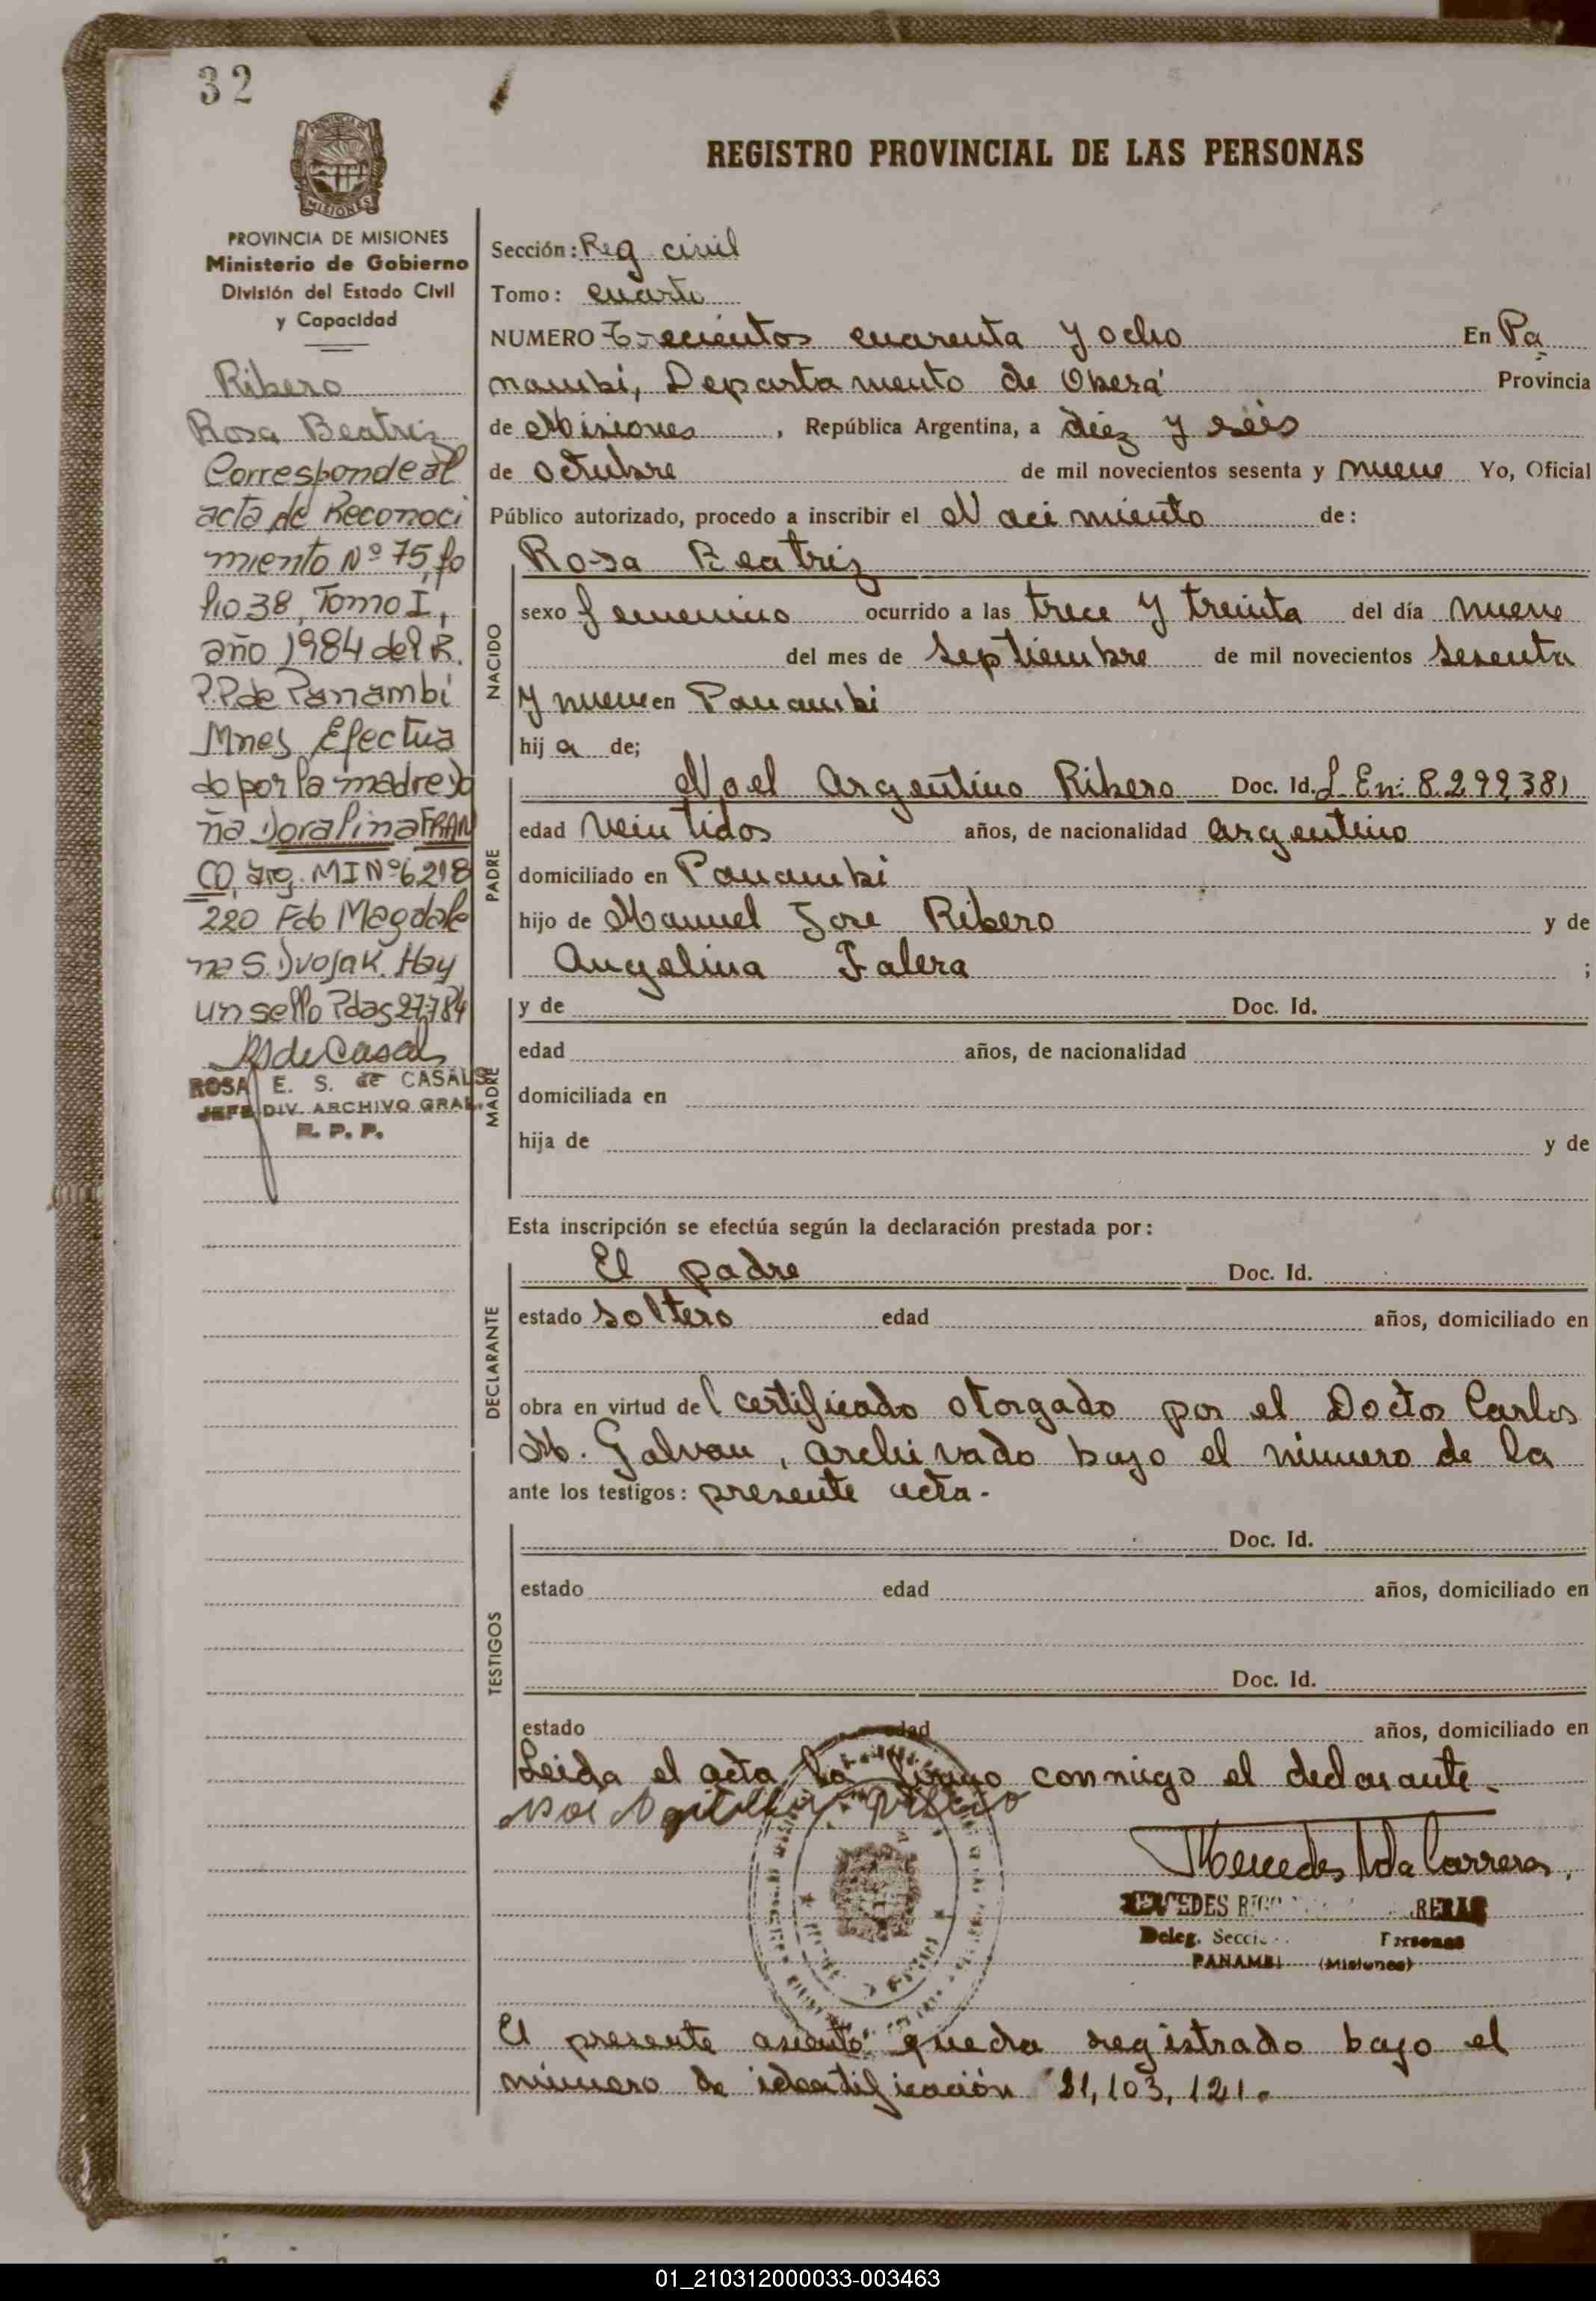 32
REGISTRO PROVINCIAL DE LAS PERSONAS
MISIONES
PROVINCIA DE MISIONES
Ministerio de Gobierno
División del Estado Civil
y Capacidad
Ribero
Rosa Beatriz
Corresponde al
acta de Reconoci
miento Nº 75, fo
lio 38, Tomo I,
año 1984 del R.
P.P de Panambí
Mnes Efectua
do por la madre Do
ña Doralina FRAN
CO, arg. MI Nº 6298
220 Fdo Magdale
na S. Dvojak. Hay
un sello Pdas 27784
ROSA E. S. de CASALS
JEFE DIV. ARCHIVO GRAL.
R. P. P.
Sección: Reg civil
Tomo: cuarto
NUMERO Trecientos cuarenta y ocho En Pa
nambí, Departamento de Oberá Provincia
de Misiones, República Argentina, a diez y séis
de octubre de mil novecientos sesenta y nueve Yo, Oficial
Público autorizado, procedo a inscribir el Nacimiento de:
NACIDO
Rosa Beatriz
sexo femenino ocurrido a las trece y treinta del día nueve
del mes de septiembre de mil novecientos sesenta
y nueve en Panambí
hij a de;
PADRE
Noel Argentino Ribero Doc. Id. L En: 8.299.381
edad veintidos años, de nacionalidad argentino
domiciliado en Panambí
hijo de Manuel Jose Ribero y de
Angelina Falera ;
MADRE
y de Doc. Id.
edad años, de nacionalidad
domiciliada en
hija de y de
Esta inscripción se efectúa según la declaración prestada por:
DECLARANTE
El padre Doc. Id.
estado soltero edad años, domiciliado en
obra en virtud del certificado otorgado por el Doctor Carlos
M. Galvan, archivado bajo el número de la
ante los testigos: presente acta.
TESTIGOS
Doc. Id.
estado edad años, domiciliado en
Doc. Id.
estado edad años, domiciliado en
Leida el acta la firmo conmigo el declarante.
Mercedes R de Carreras
Deleg. Secci
PANAMBI (Misiones)
El presente asiento queda registrado bajo el
número de identificación 21,103,121.
01_210312000033-003463